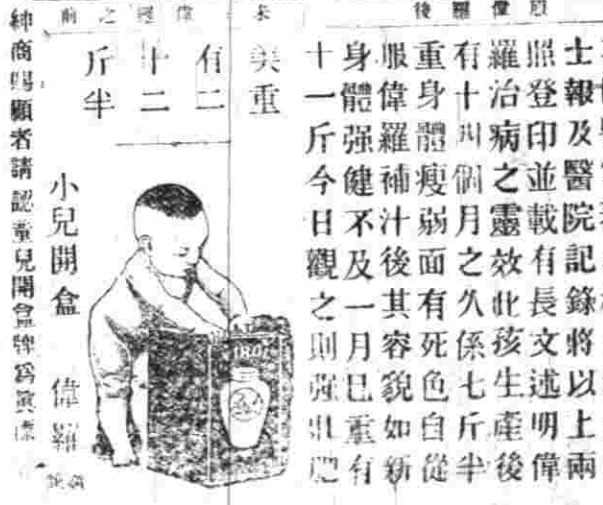 服偉羅後
士報及醫院記錄將以上兩
照登印並載有長文述明偉
羅治病之靈效此孩生產後
有十個月之久係七斤半
重身體瘦弱面有死色自從
服偉羅補汁後其容貌如新
身體强健不及一月已重有
十一斤今日觀之則强壯肥
未偉羅之前
重
有二
十二
斤半
小兒開盒 偉羅
IROL
紳商賜顧者請認童兒開盒牌爲眞標